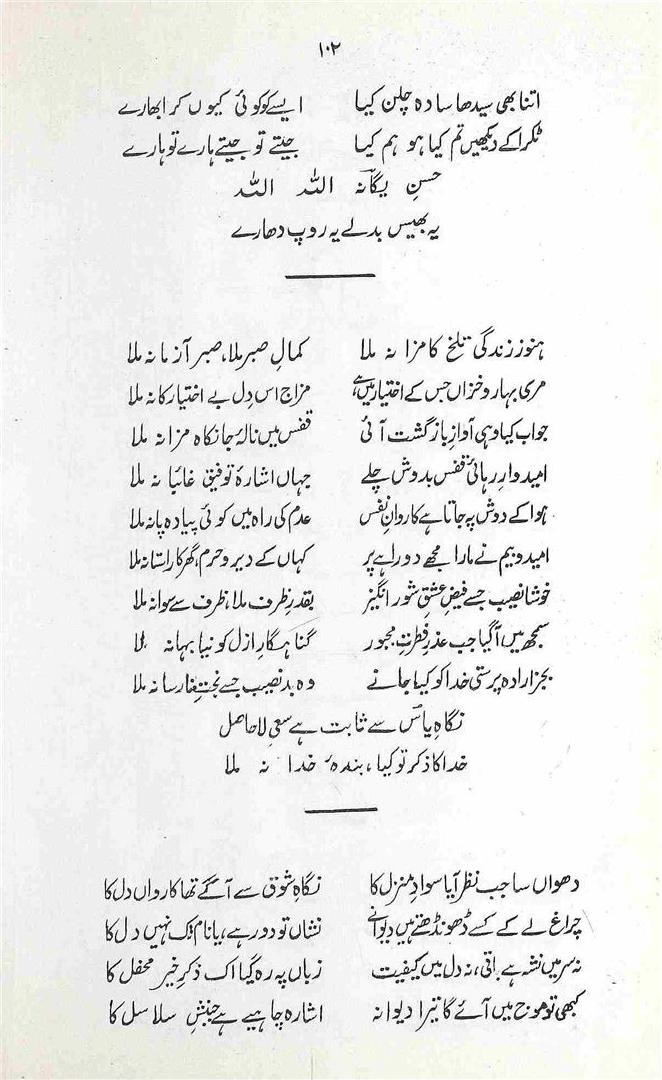 ۱۰۲
اتنا بھی سیدھا سادہ چلن کیا ایسے کو کوئی کیوں کر ابھارے
ٹکرا کے دیکھیں تم کیا ہو ہم کیا جیتے تو جیتے ہارے تو ہارے
حسنِ یگانہ اللہ اللہ
یہ بھیس بدلے یہ روپ دھارے
ہنوز زندگیٔ تلخ کا مزا نہ ملا کمالِ صبر ملا، صبر آزما نہ ملا
مری بہار و خزاں جس کے اختیار میں ہے مزاج اس دلِ بے اختیار کا نہ ملا
جواب کیا وہی آوازِ بازگشت آئی قفس میں نالۂ جانکاہ مزا نہ ملا
امیدوارِ رہائی قفس بدوش چلے جہاں اشارۂ توفیق غائبانہ ملا
ہوا کے دوش پہ جاتا ہے کاروانِ نفس عدم کی راہ میں کوئی پیادہ پا نہ ملا
امید و بیم نے مارا مجھے دوراہے پر کہاں کے دیر و حرم، گھر کا راستا نہ ملا
خوشا نصیب جسے فیضِ عشقِ شور انگیز بقدرِ ظرف ملا، ظرف سے سوا نہ ملا
سمجھ میں آ گیا جب عذرِ فطرتِ مجبور گناہگارِ ازل کو نیا بہانہ ملا
بجز ارادہ پرستی خدا کو کیا جانے وہ بدنصیب جسے بختِ نارسا نہ ملا
نگاہِ یاسؔ سے ثابت ہے سعیِ لاحاصل
خدا کا ذکر تو کیا، بندۂ خدا نہ ملا
دھواں سا جب نظر آیا سوادِ منزل کا نگاہِ شوق سے آگے تھا کارواں دل کا
چراغ لے کے کسے ڈھونڈھتے ہیں دیوانے نشاں تو دور ہے، یاں نام تک نہیں دل کا
نہ سر میں نشہ ہے باقی، نہ دل میں کیفیت زباں پہ رہ گیا اک ذکرِ خیر محفل کا
کبھی تو موج میں آئے گا تیرا دیوانہ اشارہ چاہیے ہے جنبشِ سلاسل کا